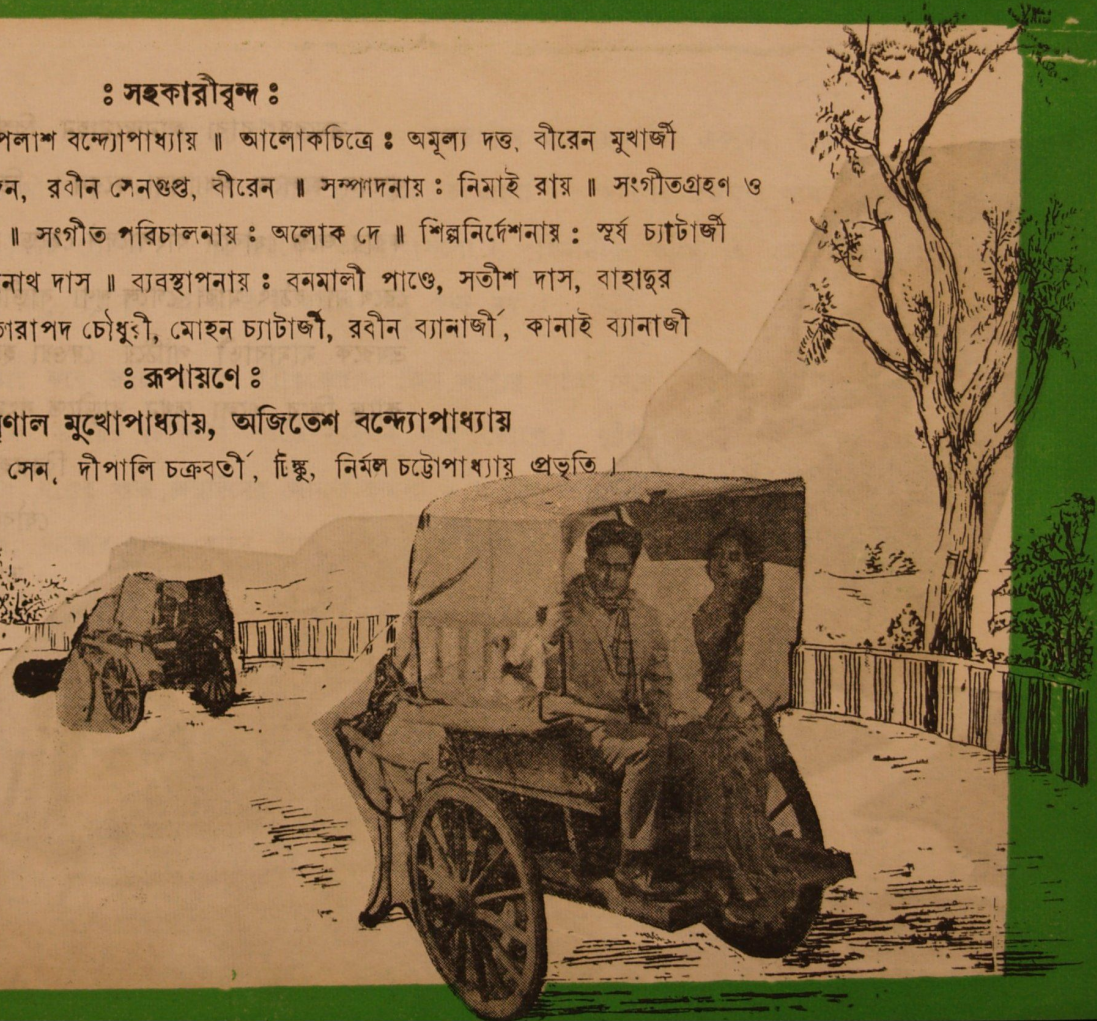 ঃ সহকারীবৃন্দ ঃ
পলাশ বন্দ্যোপাধ্যায় ॥ আলোকচিত্রে : অমূল্য দত্ত, বীরেন মুখার্জী
রবীন সেনগুপ্ত, বীরেন ॥ সম্পাদনায় : নিমাই রায় ॥ সংগীতগ্রহণ ও
॥ সংগীত পরিচালনায় : অলোক দে ॥ শিল্পনির্দেশনায় : সূর্য চ্যাটার্জী
নাথ দাস ॥ ব্যবস্থাপনায় : বনমালী পাণ্ডে, সতীশ দাস, বাহাদুর
তারাপদ চৌধুরী, মোহন চ্যাটার্জী, রবীন ব্যানার্জী, কানাই ব্যানার্জী
ঃ রূপায়ণে ঃ
মুখোপাধ্যায়, অজিতেশ বন্দ্যোপাধ্যায়
সেন, দীপালি চক্রবর্তী, টিঙ্কু, নির্মল চট্টোপাধ্যায় প্রভৃতি।